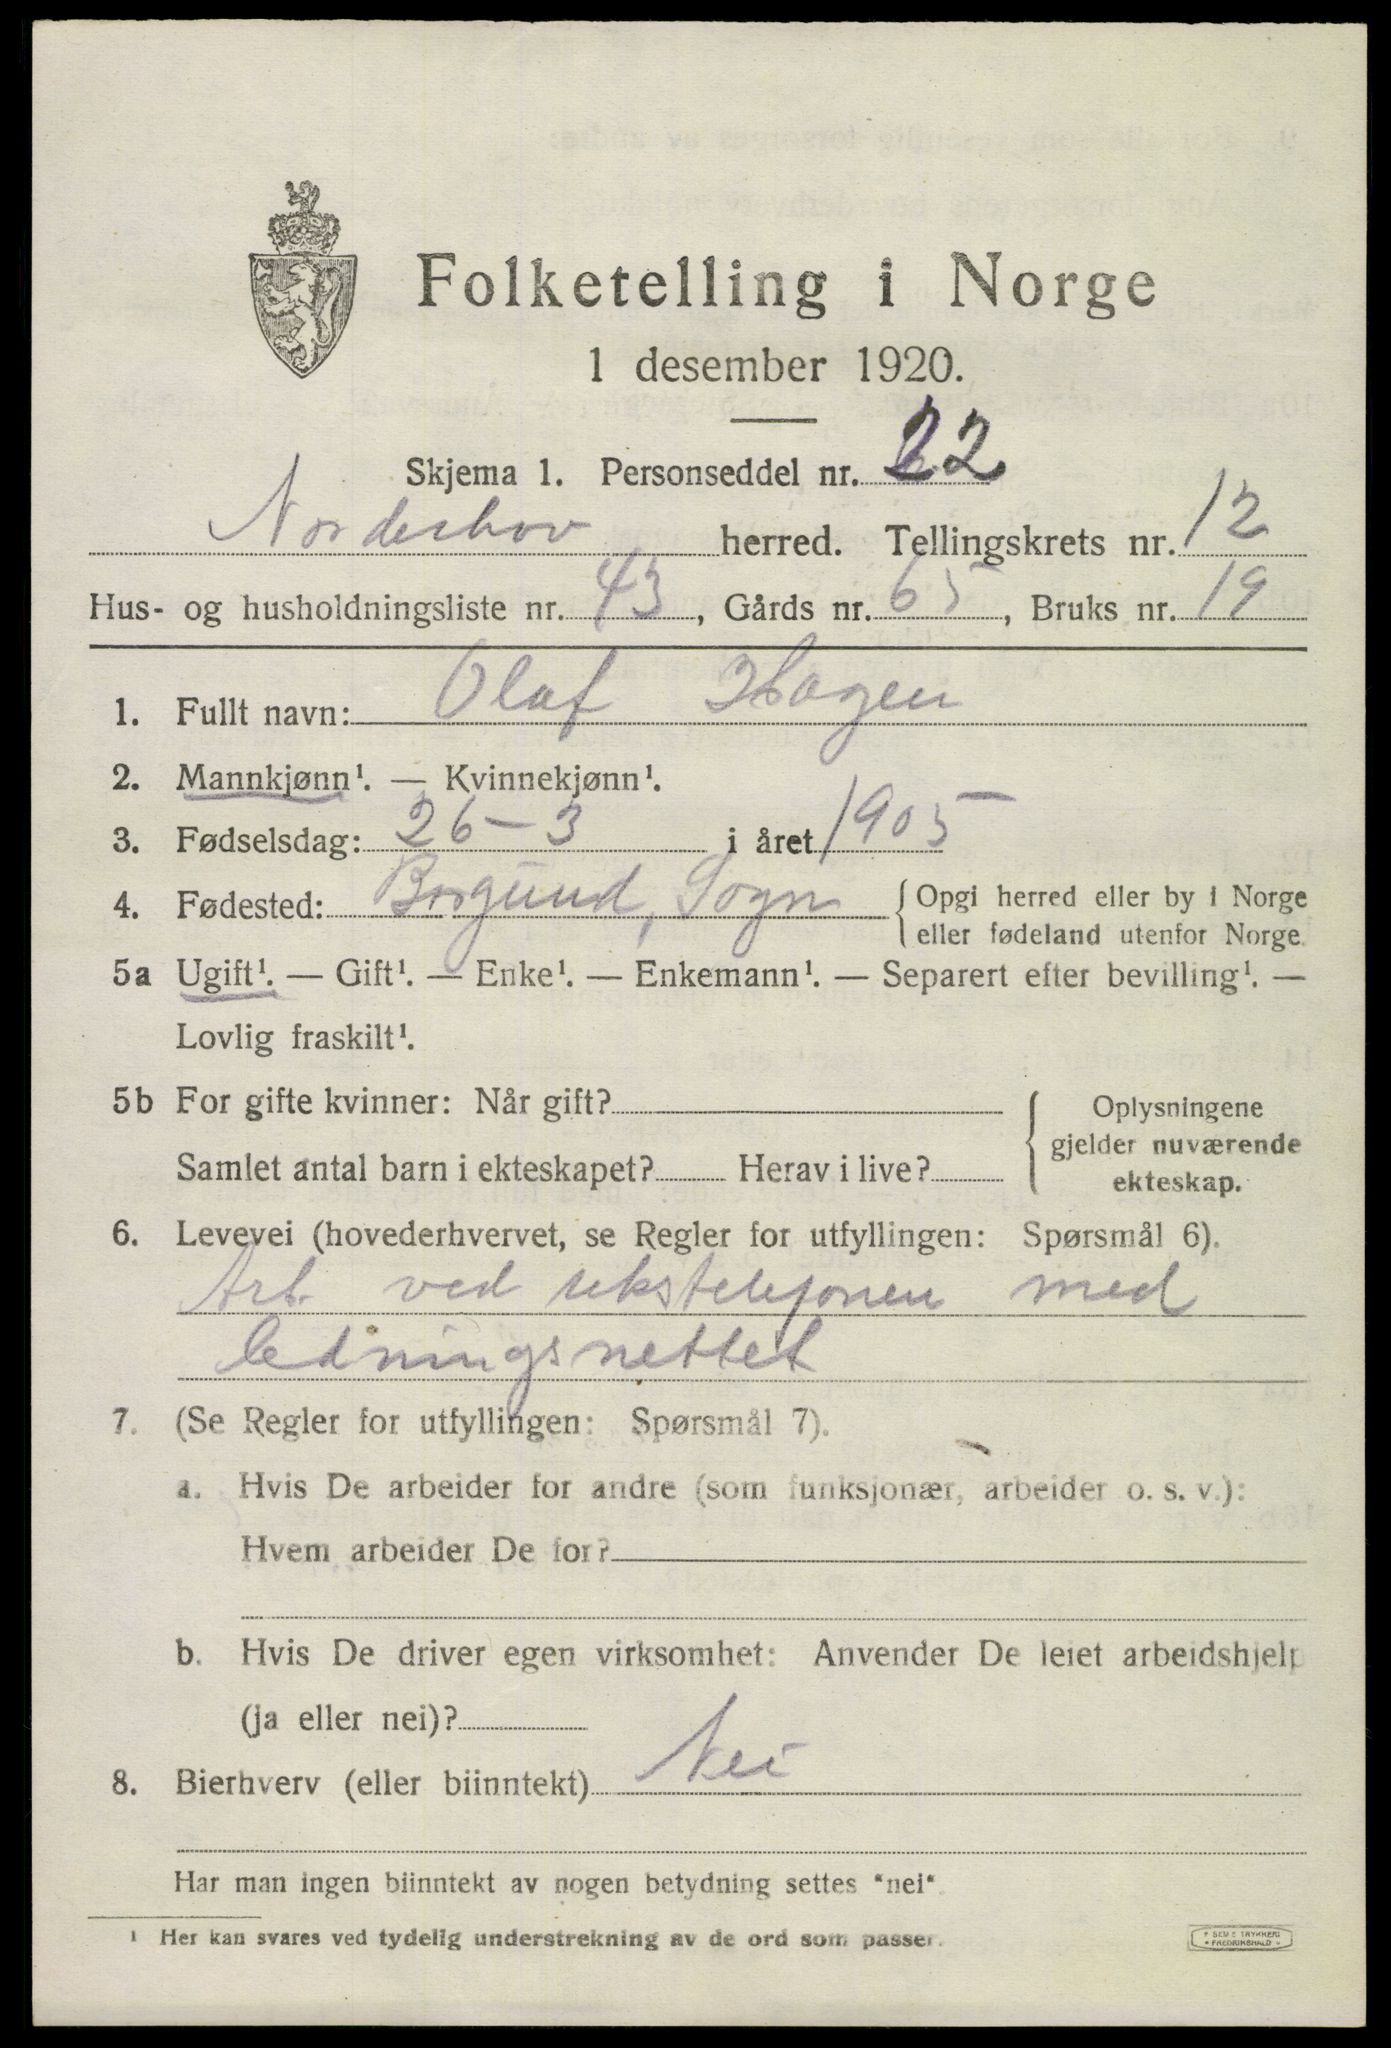 Folketelling i Norge
1 desember 1920.
Skjema 1. Personseddel nr. 22
Norderhov herred. Tellingskrets nr. 12
Hus- og husholdningsliste nr. 43, Gårds nr. 65, Bruks nr. 19
1. Fullt navn: Olaf Hagen
2. Mannkjønn¹. — Kvinnekjønn¹.
3. Fødselsdag: 26-3 i året 1905
4. Fødested: Borgund, Sogn { Opgi herred eller by i Norge
eller fødeland utenfor Norge.
5a Ugift¹. — Gift¹. — Enke¹. — Enkemann¹. — Separert efter bevilling¹. —
Lovlig fraskilt¹.
5b For gifte kvinner: Når gift?
Samlet antal barn i ekteskapet? Herav i live?
Oplysningene
gjelder nuværende
ekteskap.
6. Levevei (hovederhvervet, se Regler for utfyllingen: Spørsmål 6).
Arb. ved rikstelefonen med
ledningsnettet
7. (Se Regler for utfyllingen: Spørsmål 7).
a. Hvis De arbeider for andre (som funksjonær, arbeider o. s. v.):
Hvem arbeider De for?
b. Hvis De driver egen virksomhet: Anvender De leiet arbeidshjelp
(ja eller nei)?
8. Bierhverv (eller biinntekt) Nei
Har man ingen biinntekt av nogen betydning settes "nei".
¹ Her kan svares ved tydelig understrekning av de ord som passer.
TRYKKERI
FREDRIKSHALD